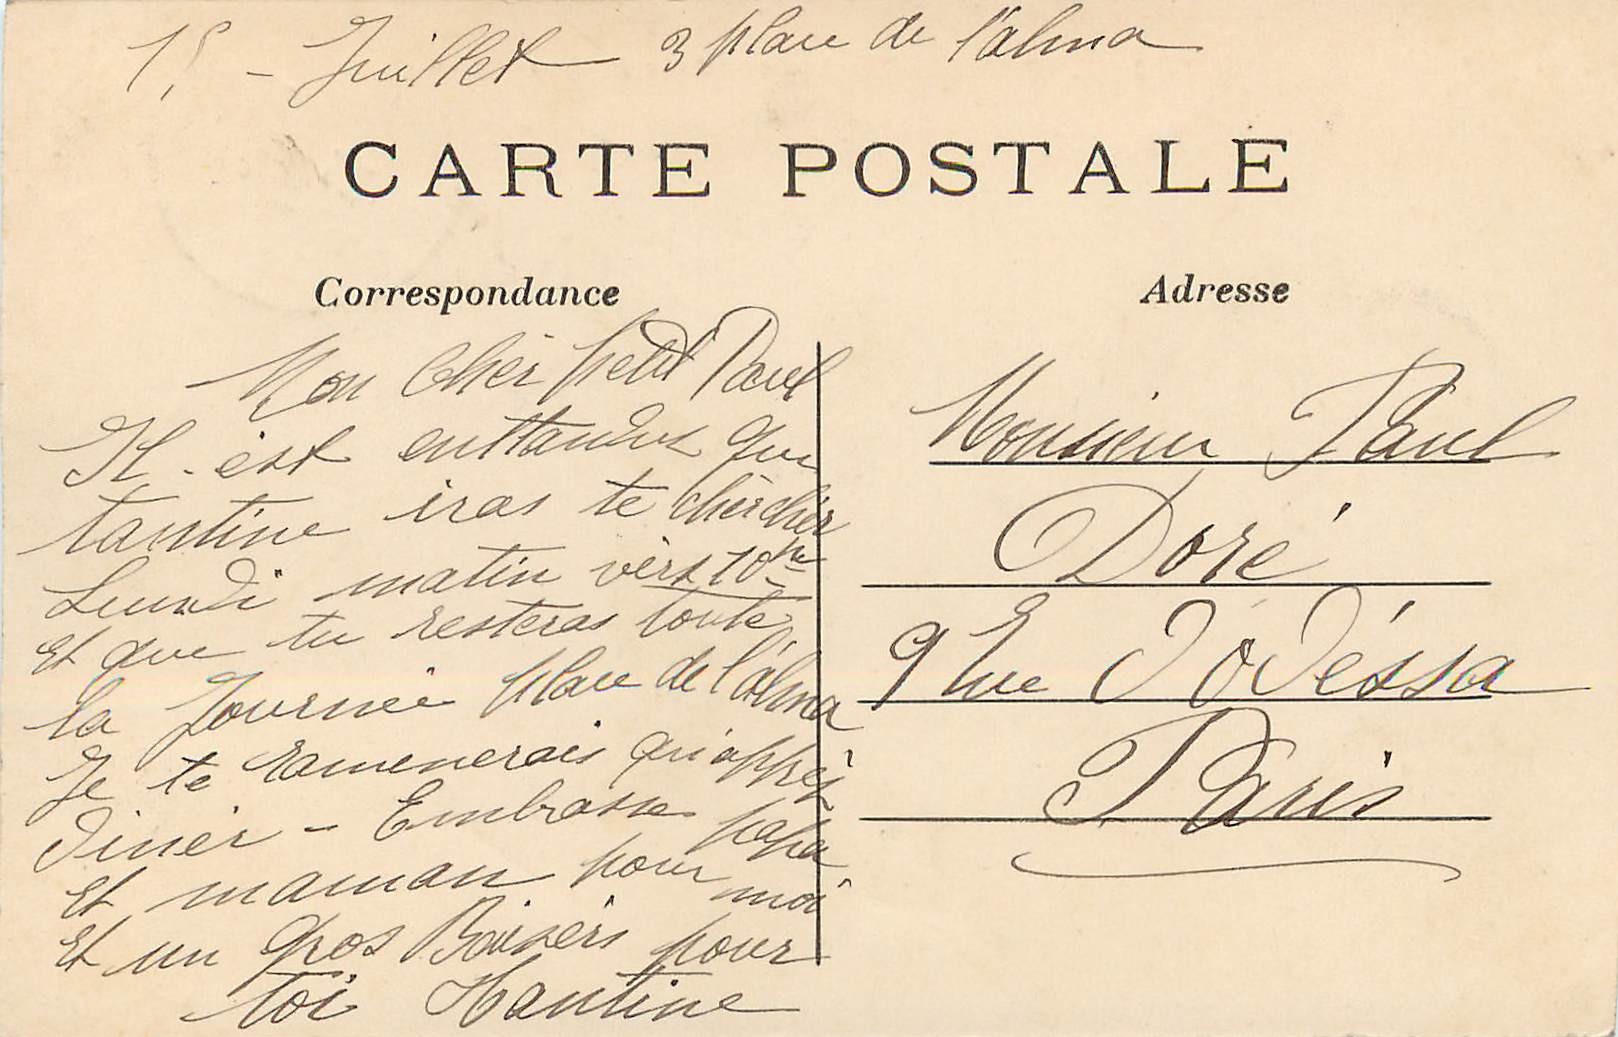 15 - Juillet 3 place de l'alma
CARTE POSTALE
Correspondance
Adresse
Mon Cher petit Paul
Il est enttandus que
tantine iras te chercher
Lundi matin vers 10 h
et que tu resteras toute
la Journée place de l'alma
Je te ramenerais qu'apprés
Diner - Embrasse papa
et maman pour moi
et un gros Baisers pour
toi Tantine
Monsieur Paul
Doré
9 Rue d'Odéssa
Paris